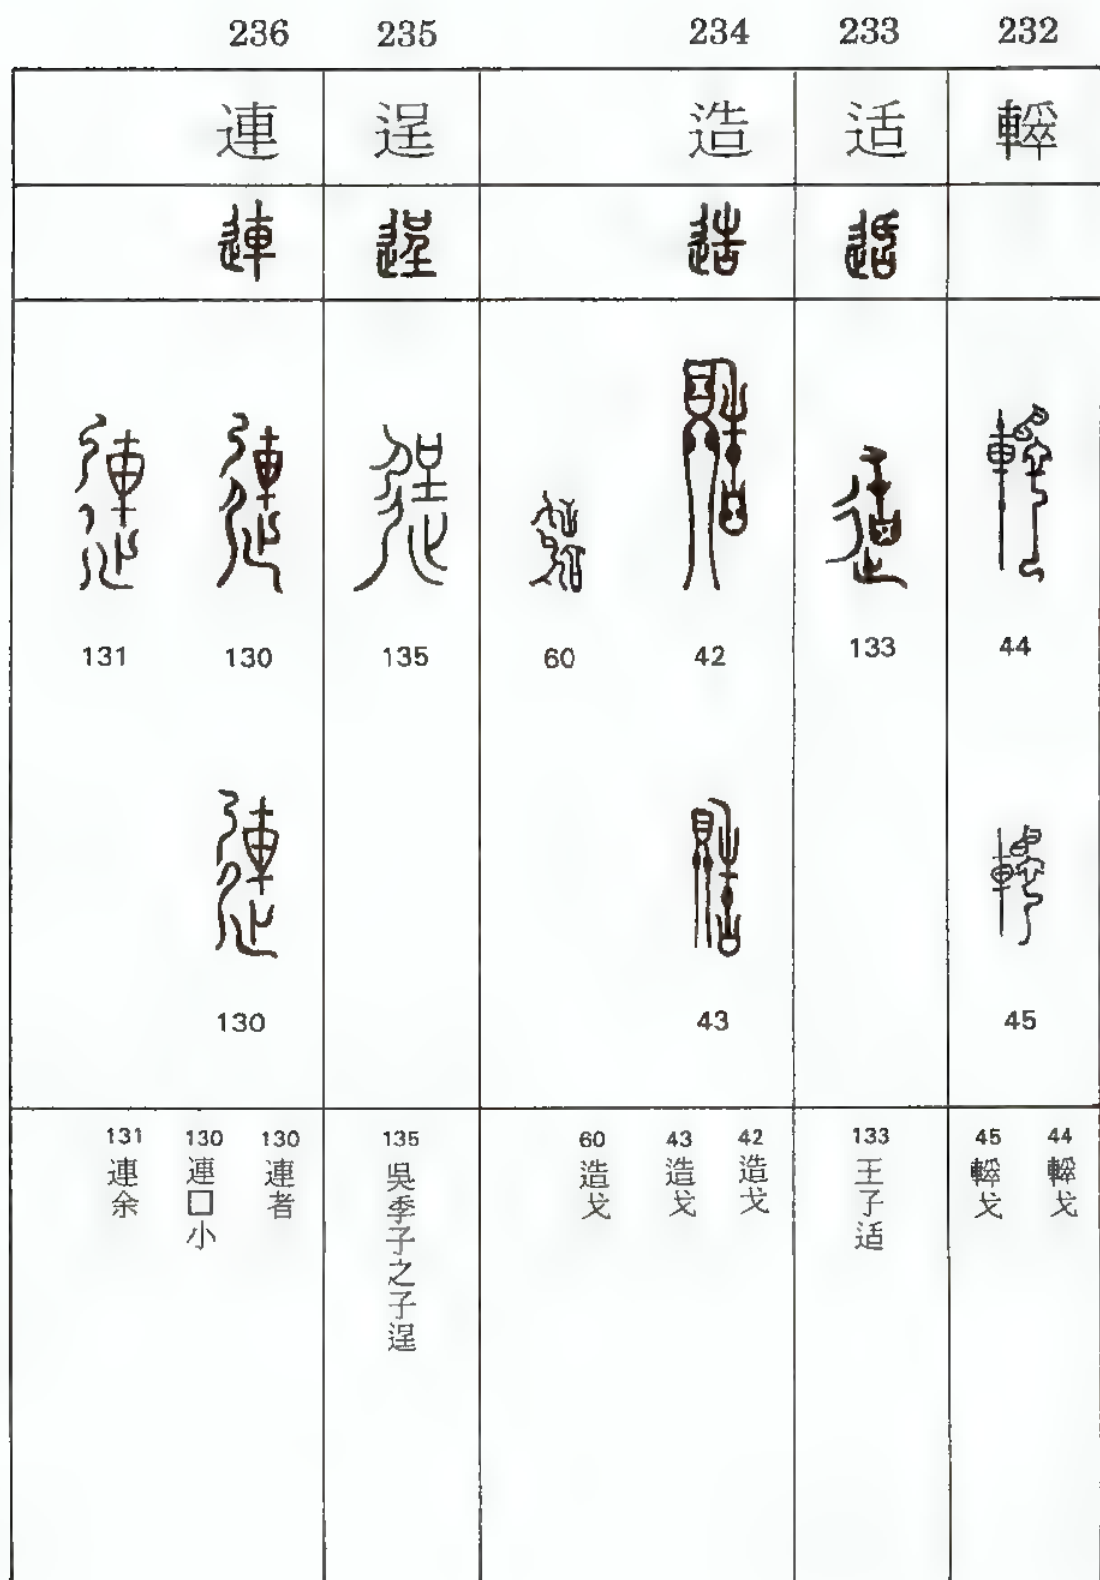 232
44
45
44
戈
45
戈
233
适
133
133
王子适
234
造
42
43
60
42
造戈
43
造戈
60
造戈
235
逞
135
135
吳季子之子逞
236
連
130
130
131
130
連者
130
連囗小
131
連余